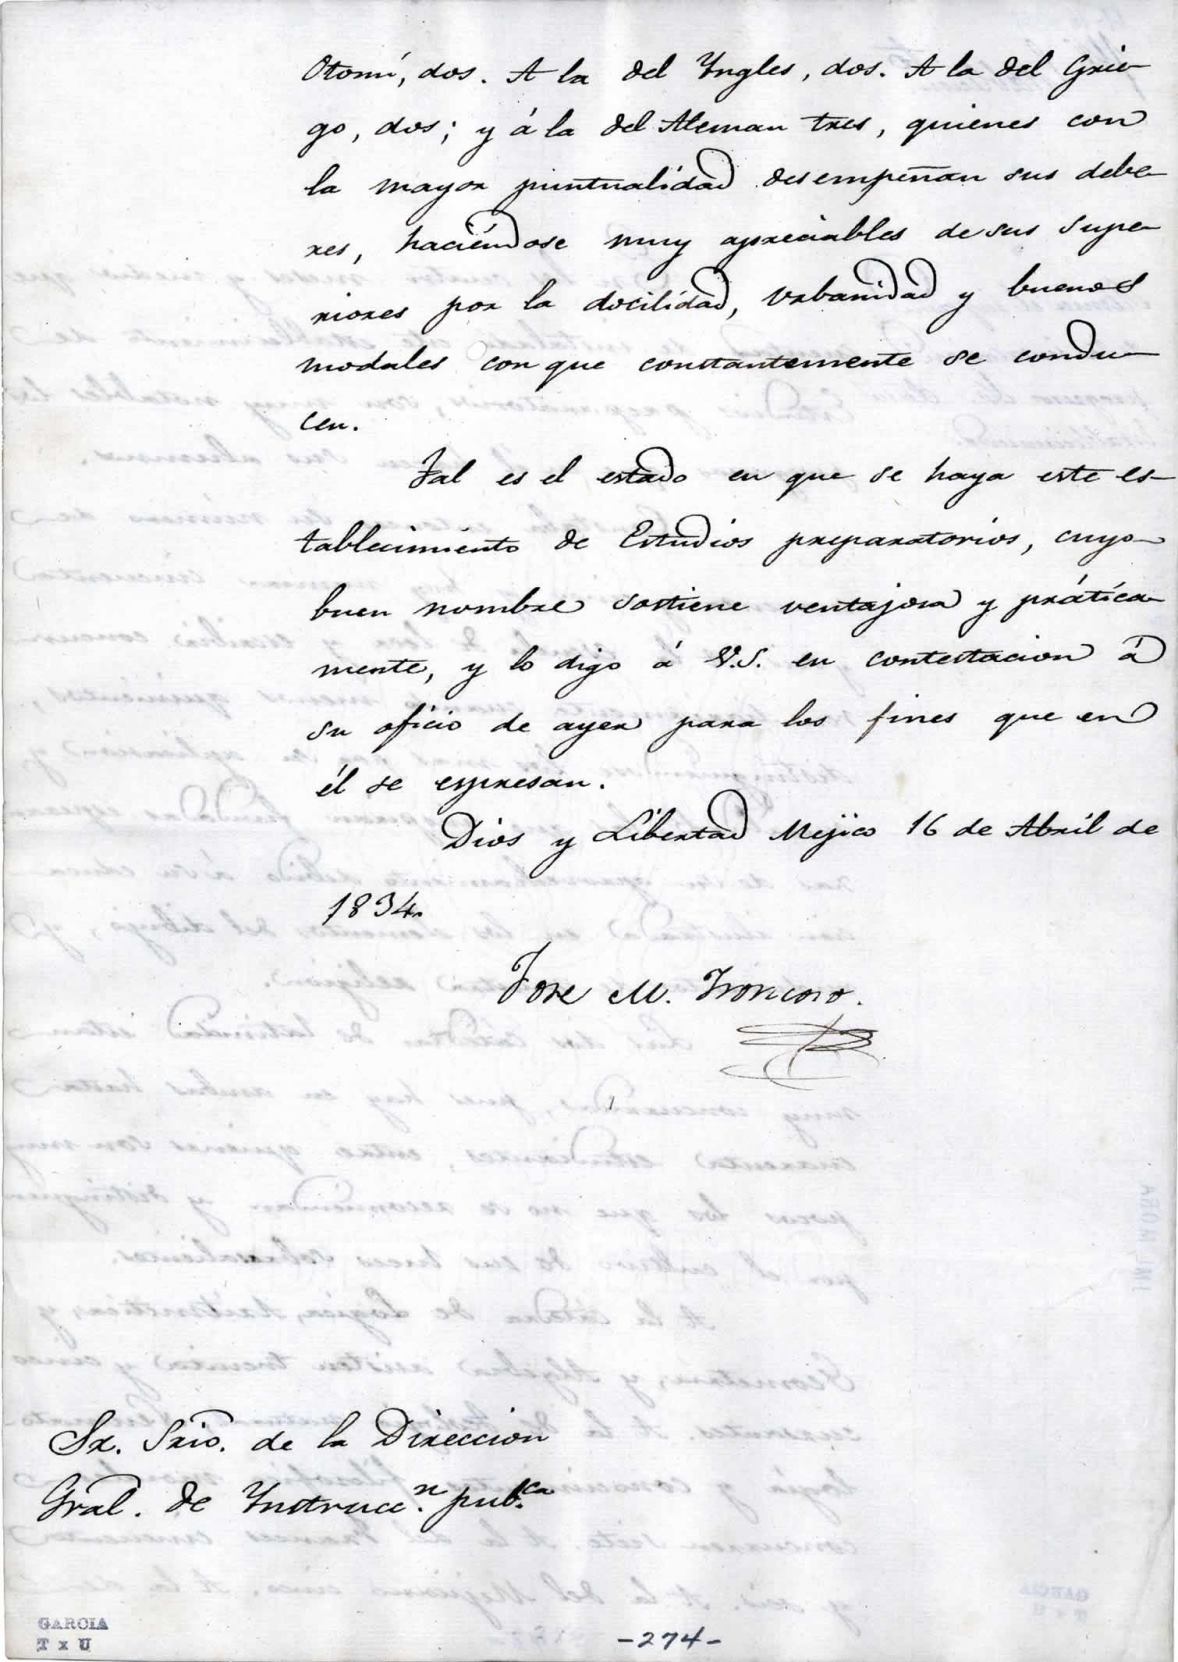 Otomí, dos. A la del Yngles, dos. A la del Grie-
go, dos; y á la del Aleman tres, quienes con
la mayor puntualidad desempeñan sus debe-
res, haciéndose muy apreciables de sus Supe-
riores por la docilidad, urbanidad y buenos
modales con que constantemente se condu-
cen.
Tal es el estado en que se haya este es-
tablecimiento de Estudios preparatorios, cuyo
buen nombre sostiene ventajosa y prática-
mente, y lo digo á V.S. en contestacion á
su oficio de ayer para los fines que en
él se espresan.
Dios y Libertad Mejico 16 de Abril de
1834.
Jose M. Troncoso.
Sr. Srio. de la Direccion
Gral. de Ynstrucc.n pub.ca
GARCIA
T x U
-274-